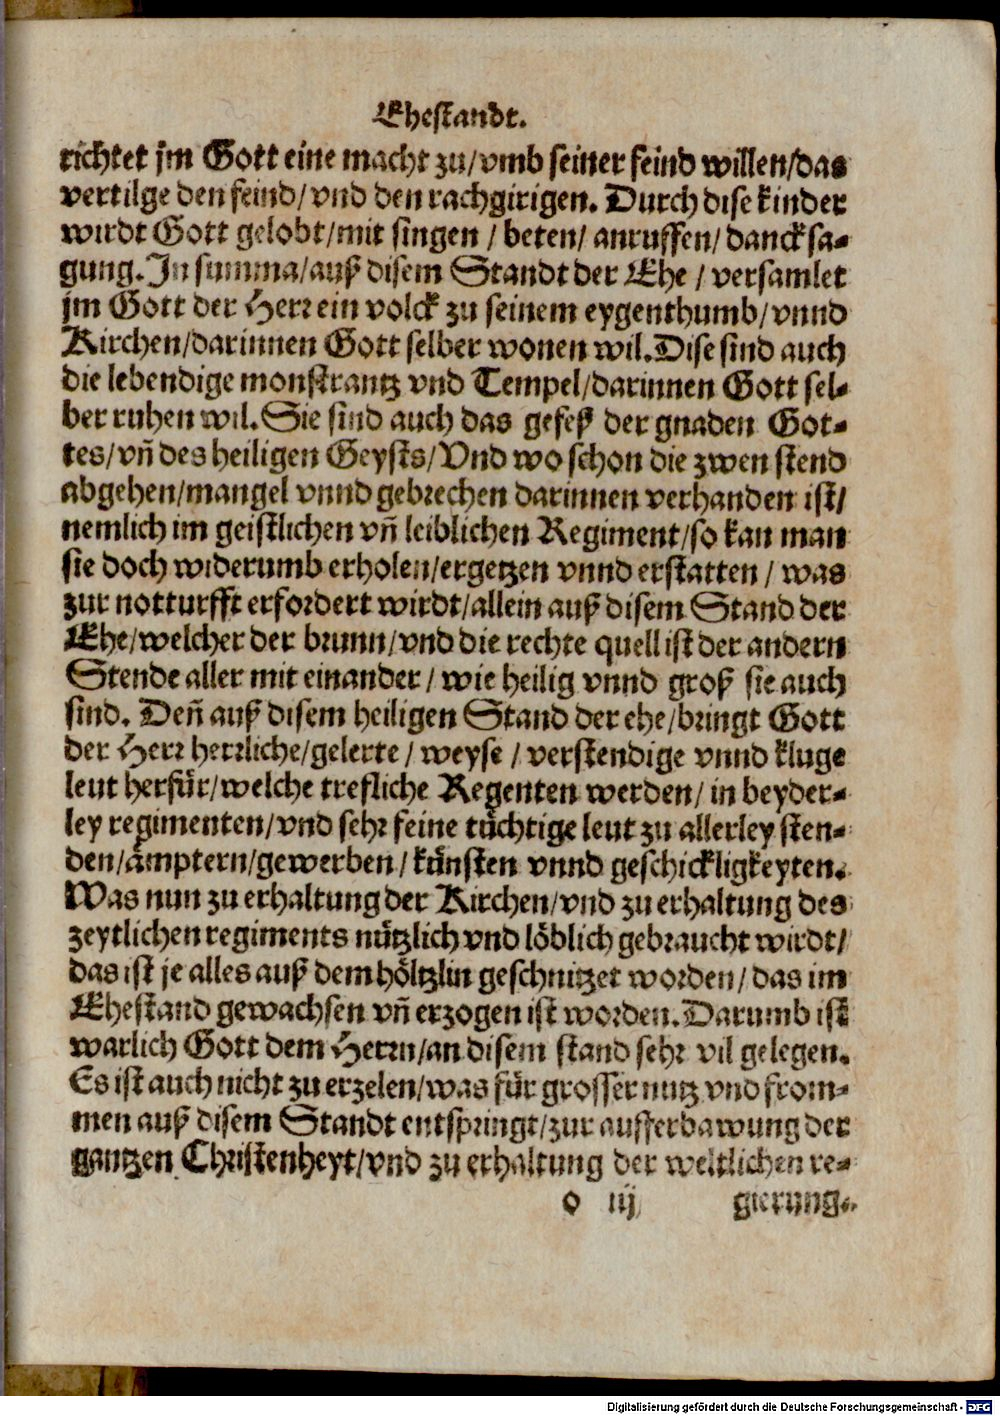 Ehestandt.
richtet jm Gott eine macht zu/vmb seiner feind willen/das
vertilge den feind/vnd den rachgirigen. Durch dise kinder
wirdt Gott gelobt/mit singen / beten/ anruffen/ dancksa-
gung. In summa/auß disem Standt der Ehe / versamlet
jm Gott der Herr ein volck zu seinem eygenthumb/vnnd
Kirchen/darinnen Gott selber wonen wil. Dise sind auch
die lebendige monstrantz vnd Tempel/darinnen Gott sel-
ber ruhen wil. Sie sind auch das gefeß der gnaden Got-
tes/vñ des heiligen Geysts/Vnd wo schon die zwen stend
abgehen/mangel vnnd gebrechen darinnen verhanden ist/
nemlich im geistlichen vñ leiblichen Regiment/so kan man
sie doch widerumb erholen/ergetzen vnnd erstatten / was
zur notturfft erfordert wirdt/allein auß disem Stand der
Ehe/welcher der brunn/vnd die rechte quell ist der andern
Stende aller mit einander / wie heilig vnnd groß sie auch
sind. Deñ auß disem heiligen Stand der ehe/bringt Gott
der Herr herrliche/gelerte / weyse / verstendige vnnd kluge
leut herfür/welche trefliche Regenten werden/ in beyder-
ley regimenten/vnd sehr feine tüchtige leut zu allerley sten-
den/ämptern/gewerben / künsten vnnd geschickligkeyten.
Was nun zu erhaltung der Kirchen/vnd zu erhaltung des
zeytlichen regiments nützlich vnd löblich gebraucht wirdt/
das ist je alles auß dem höltzlin geschnitzet worden/das im
Ehestand gewachsen vñ erzogen ist worden. Darumb ist
warlich Gott dem Herrn/an disem stand sehr vil gelegen.
Es ist auch nicht zu erzelen/was für grosser nutz vnd from-
men auß disem Standt entspringt/zur aufferbawung der
gantzen Christenheyt/vnd zu erhaltung der weltlichen re-
o iij gierung.
Digitalisierung gefördert durch die Deutsche Forschungsgemeinschaft - DFG